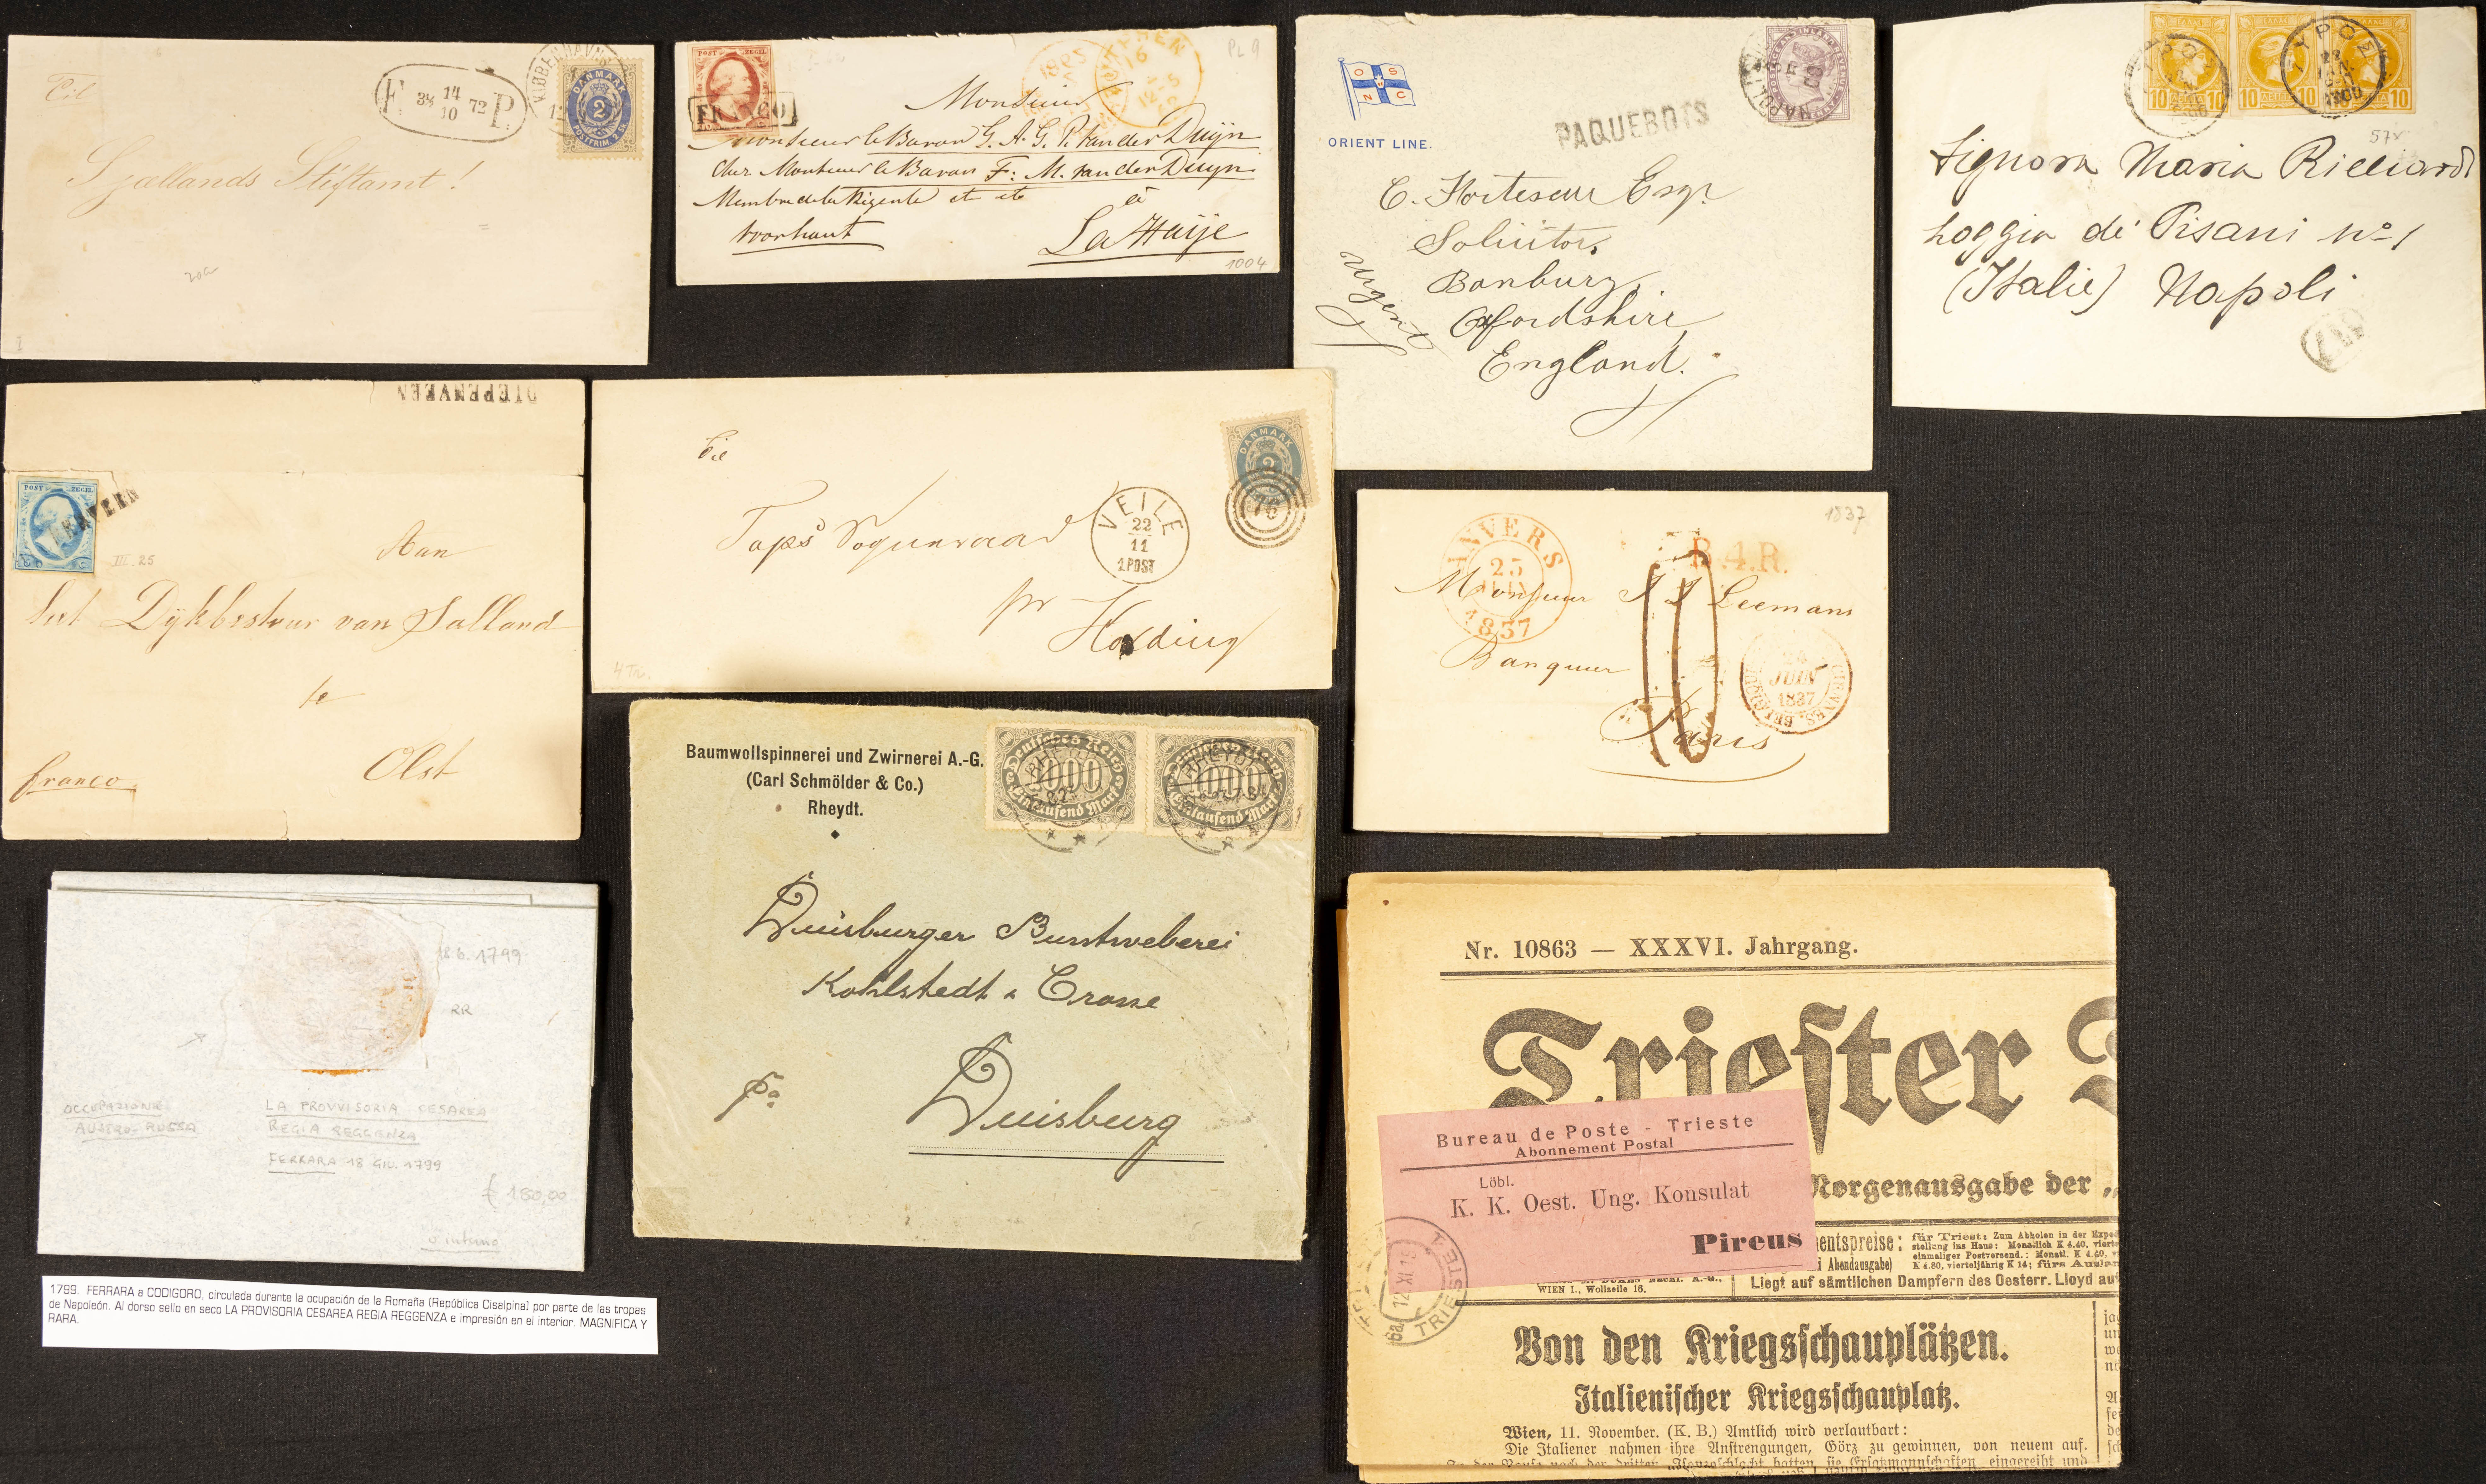 Til
F. 38 14/10 72 P.
KIØBENHAVN
DANMARK
2
POSTFRIM. 2 SK.
Sjællands Stiftamt!
POST ZEGEL
FRANCO
PL 9
Monsieur
Monsieur le Baron G. A. G. P. van der Duijn
Chez Monsieur le Baron F: M. van der Duyn
à
Voorhout
La Haije
1004
O S
N C
ORIENT LINE.
PAQUEBOTS
NAPOLI
Esqr
Solicitor,
Banbury,
Oxfordshire,
England.
Urgent
10 10 10
ΣΥΡΟΣ
1900
57v
Signora Maria
Loggia di Pisani no 1
(Italie) Napoli
DIEPENVEEN
POST ZEGEL
III. 25
Aan
het Dijkbestuur van Salland
te
Olst
franco
DANMARK
2
76
VEILE
22
11
1 POST
Taps Sogneraad
pr
Kolding
1837
ANVERS
25
JUIN
1837
B.4.R.
Monsieur J J Leemans
Banquier
Paris
JUIN
1837
Baumwollspinnerei und Zwirnerei A.-G.
(Carl Schmölder & Co.)
Rheydt.
Deutsches Reich
1000
Eintausend Mark
Deutsches Reich
1000
Eintausend Mark
RHEYDT
Duisburger Buntweberei
Kohlstedt & Crosse
Duisburg
18.6.1799
RR
OCCUPAZIONE
AUSTRO-RUSSA
LA PROVVISORIA CESAREA
REGIA REGGENZA
FERRARA 18 GIU. 1799
€ 180,00
interno
1799. FERRARA a CODIGORO, circulada durante la ocupación de la Romaña (República Cisalpina) por parte de las tropas
de Napoleón. Al dorso sello en seco LA PROVISORIA CESAREA REGIA REGGENZA e impresión en el interior. MAGNIFICA Y
RARA.
Nr. 10863 — XXXVI. Jahrgang.
Triester
Bureau de Poste - Trieste
Abonnement Postal
Löbl.
K. K. Oest. Ung. Konsulat
Pireus
TRIESTE
12 XI 15
Morgenausgabe der „
entspreise: für Triest: Zum Abholen in der Exped
stellung ins Haus: Monatlich K 4.40, viert
einmaliger Postversend.: Monatl. K 4.40, v
i Abendausgabe) K 4.80, vierteljährig K 14; fürs Auslan
WIEN I., Wollzeile 16.
Liegt auf sämtlichen Dampfern des Oesterr. Lloyd auf
Von den Kriegsschauplätzen.
Italienischer Kriegsschauplatz.
Wien, 11. November. (K. B.) Amtlich wird verlautbart:
Die Italiener nahmen ihre Anstrengungen, Görz zu gewinnen, von neuem auf.